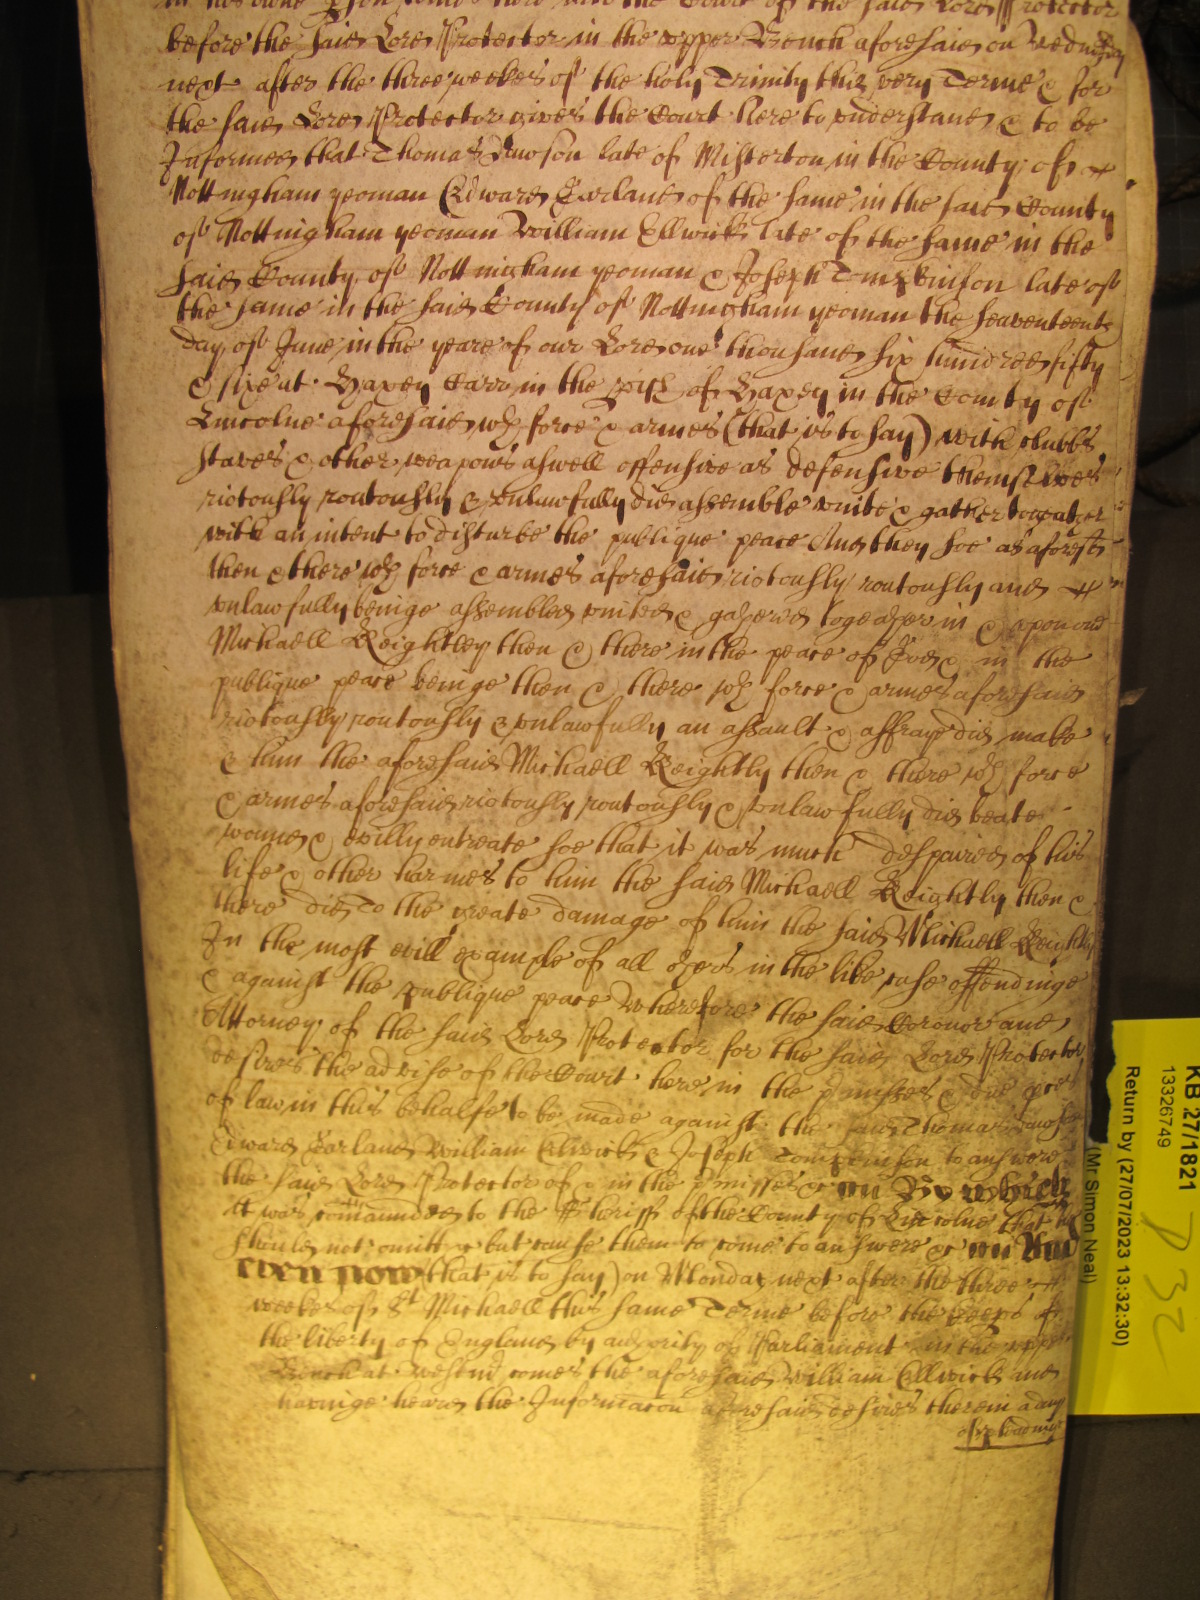 in his owne p[er]son comes here into the Court of the said Lord Protector
before the said Lord Protector in the vpper Bench aforesaid on Wednesday
next after the three weekes of the holy Trinity this very Terme & for
the said Lord Protector gives the Court here to vnderstand & to be
Informed that Thomas Dawson late of Misterton in the County of
Nottingham yeoman Edward Garland of the same in the said County
of Nottingham yeoman William Ellwick late of the same in the
said County of Nottingham yeoman & Joseph Tomkinson late of
the same in the said County of Nottingham yeoman the seaventeenth
day of June in the yeare of our Lord one thousand six hundred fifty
& six at Haxey Carr in the pish of Haxey in the County of
Lincolne aforesaid wth force & armes (that is to say) with clubbs
staves & other weapons aswell offensive as defensive themselves
riotously routously & vnlawfully did assemble vnite & gather togeather
with an intent to disturbe the publique peace And they soe as aforesd
then & there wth force & armes aforesaid riotously routously and
vnlawfully beinge assembled vnited & gathered togeather in & vpon one
Michaell Keightley then & there in the peace of God & in the
publique peace beinge then & there wth force & armes aforesaid
riotously routously & vnlawfully an assault & affray did make
& him the aforesaid Michaell Keightly then & there wth force
& armes aforesaid riotously routously & vnlawfully did beate
wound & evilly entreate soe that it was much despaired of his
life & other harmes to him the said Michaell Keightly then &
there did To the greate damage of him the said Michaell Keightly
In the most evill example of all others in the like case offendinge
& against the publique peace Wherefore the said Coronor and
Attorney of the said Lord Protector for the said Lord Protector
desires the advise of the Court here in the pmisses & due pces
of law in this behalfe to be made against the said Thomas Dawson
Edward Garland William Elwick & Joseph Tomkinson to answere
the said Lord Protector of & in the pmisses &c on By which
it was comaunded to the Sheriff of the County of Lincolne that he
should not omitt &c but cause them to come to answere &c And
even now (that is to say) on Monday next after the three
weekes of St Michaell this same Terme before the Keeps of
the liberty of England by authority of Parliament in the vpper
Bench at Westmr comes the aforesaid William Ellwick and
havinge heard the Informacon aforesaid desires therein a day
of pleadinge
KB 27/1821
13326749
Return by (27/07/2023 13:32:30)
(Mr Simon Neal)